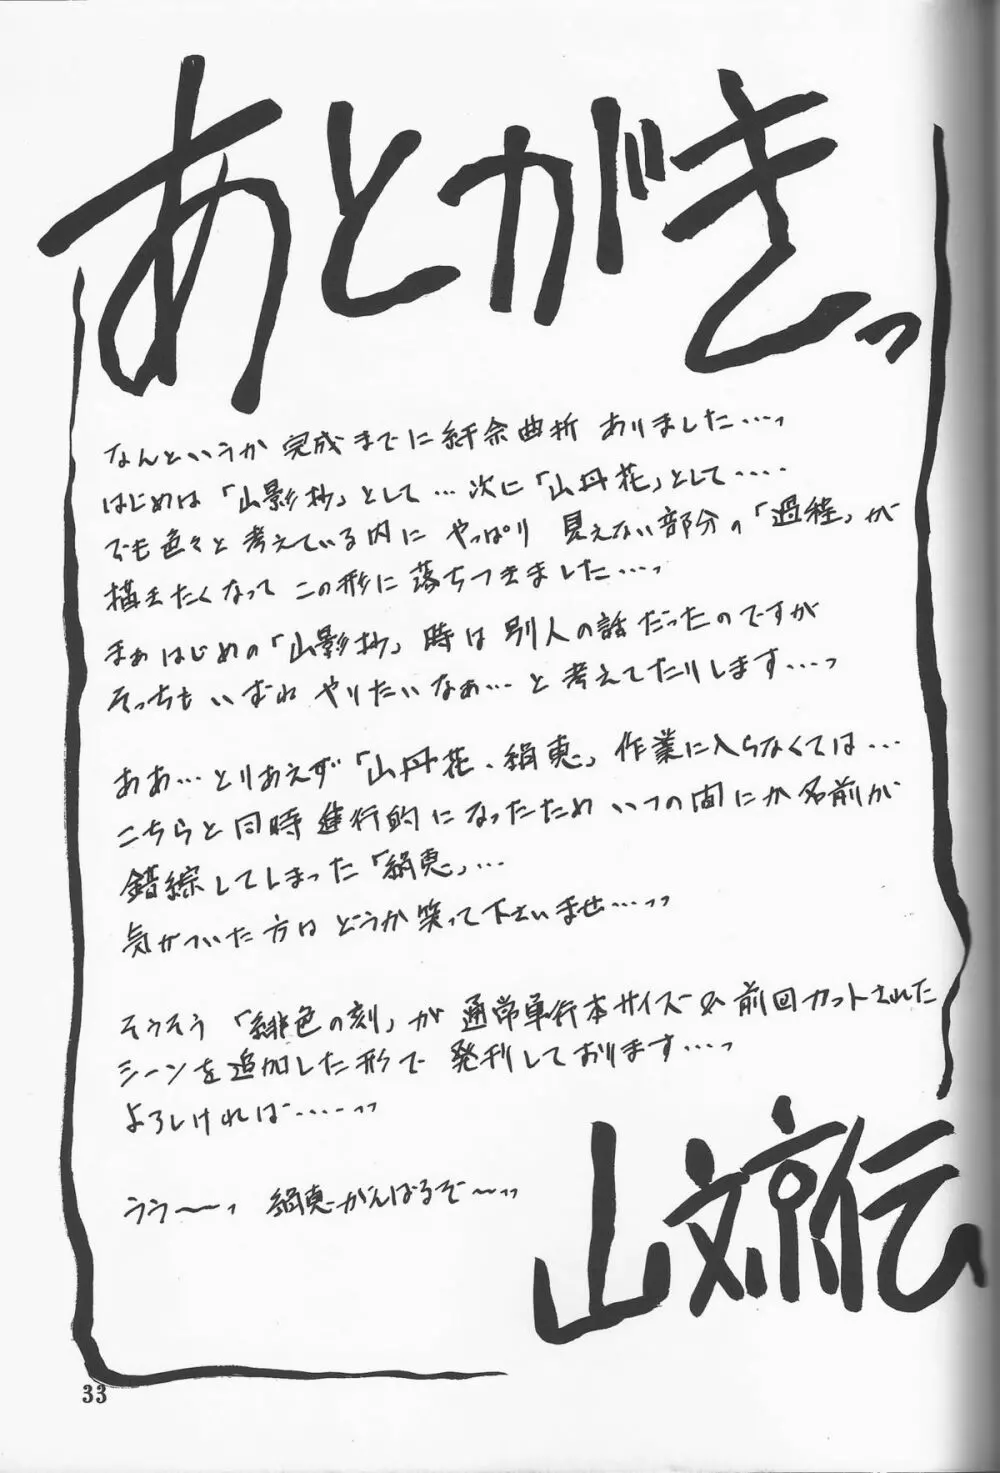 あとがきっ
なんというか 完成までに紆余曲折 ありました…っ
はじめは「山影抄」として…次に「山丹花」として‥‥
でも色々と 考えている内に やっぱり 見えない部分の「過程」が
描きたくなって この形に 落ちつきました…っ
まぁはじめの「山影抄」時は 別人の話だったのですが
そっちも いずれ やりたいなぁ…と 考えてたりします…っ
ああ…とりあえず「山丹花・絹恵」作業に入らなくては…
こちらと同時進行的に なったため いつの間にか 名前が
錯綜してしまった「絹恵」…
気がついた方は どうか 笑って下さいませ…っっ
そうそう「緋色の刻」が 通常単行本サイズ& 前回カットされた
シーンを追加した形で 発刊しております…っ
よろしければ‥‥っっ
うう〜〜っ 絹恵がんばるぞ〜っっ
山文京伝
33